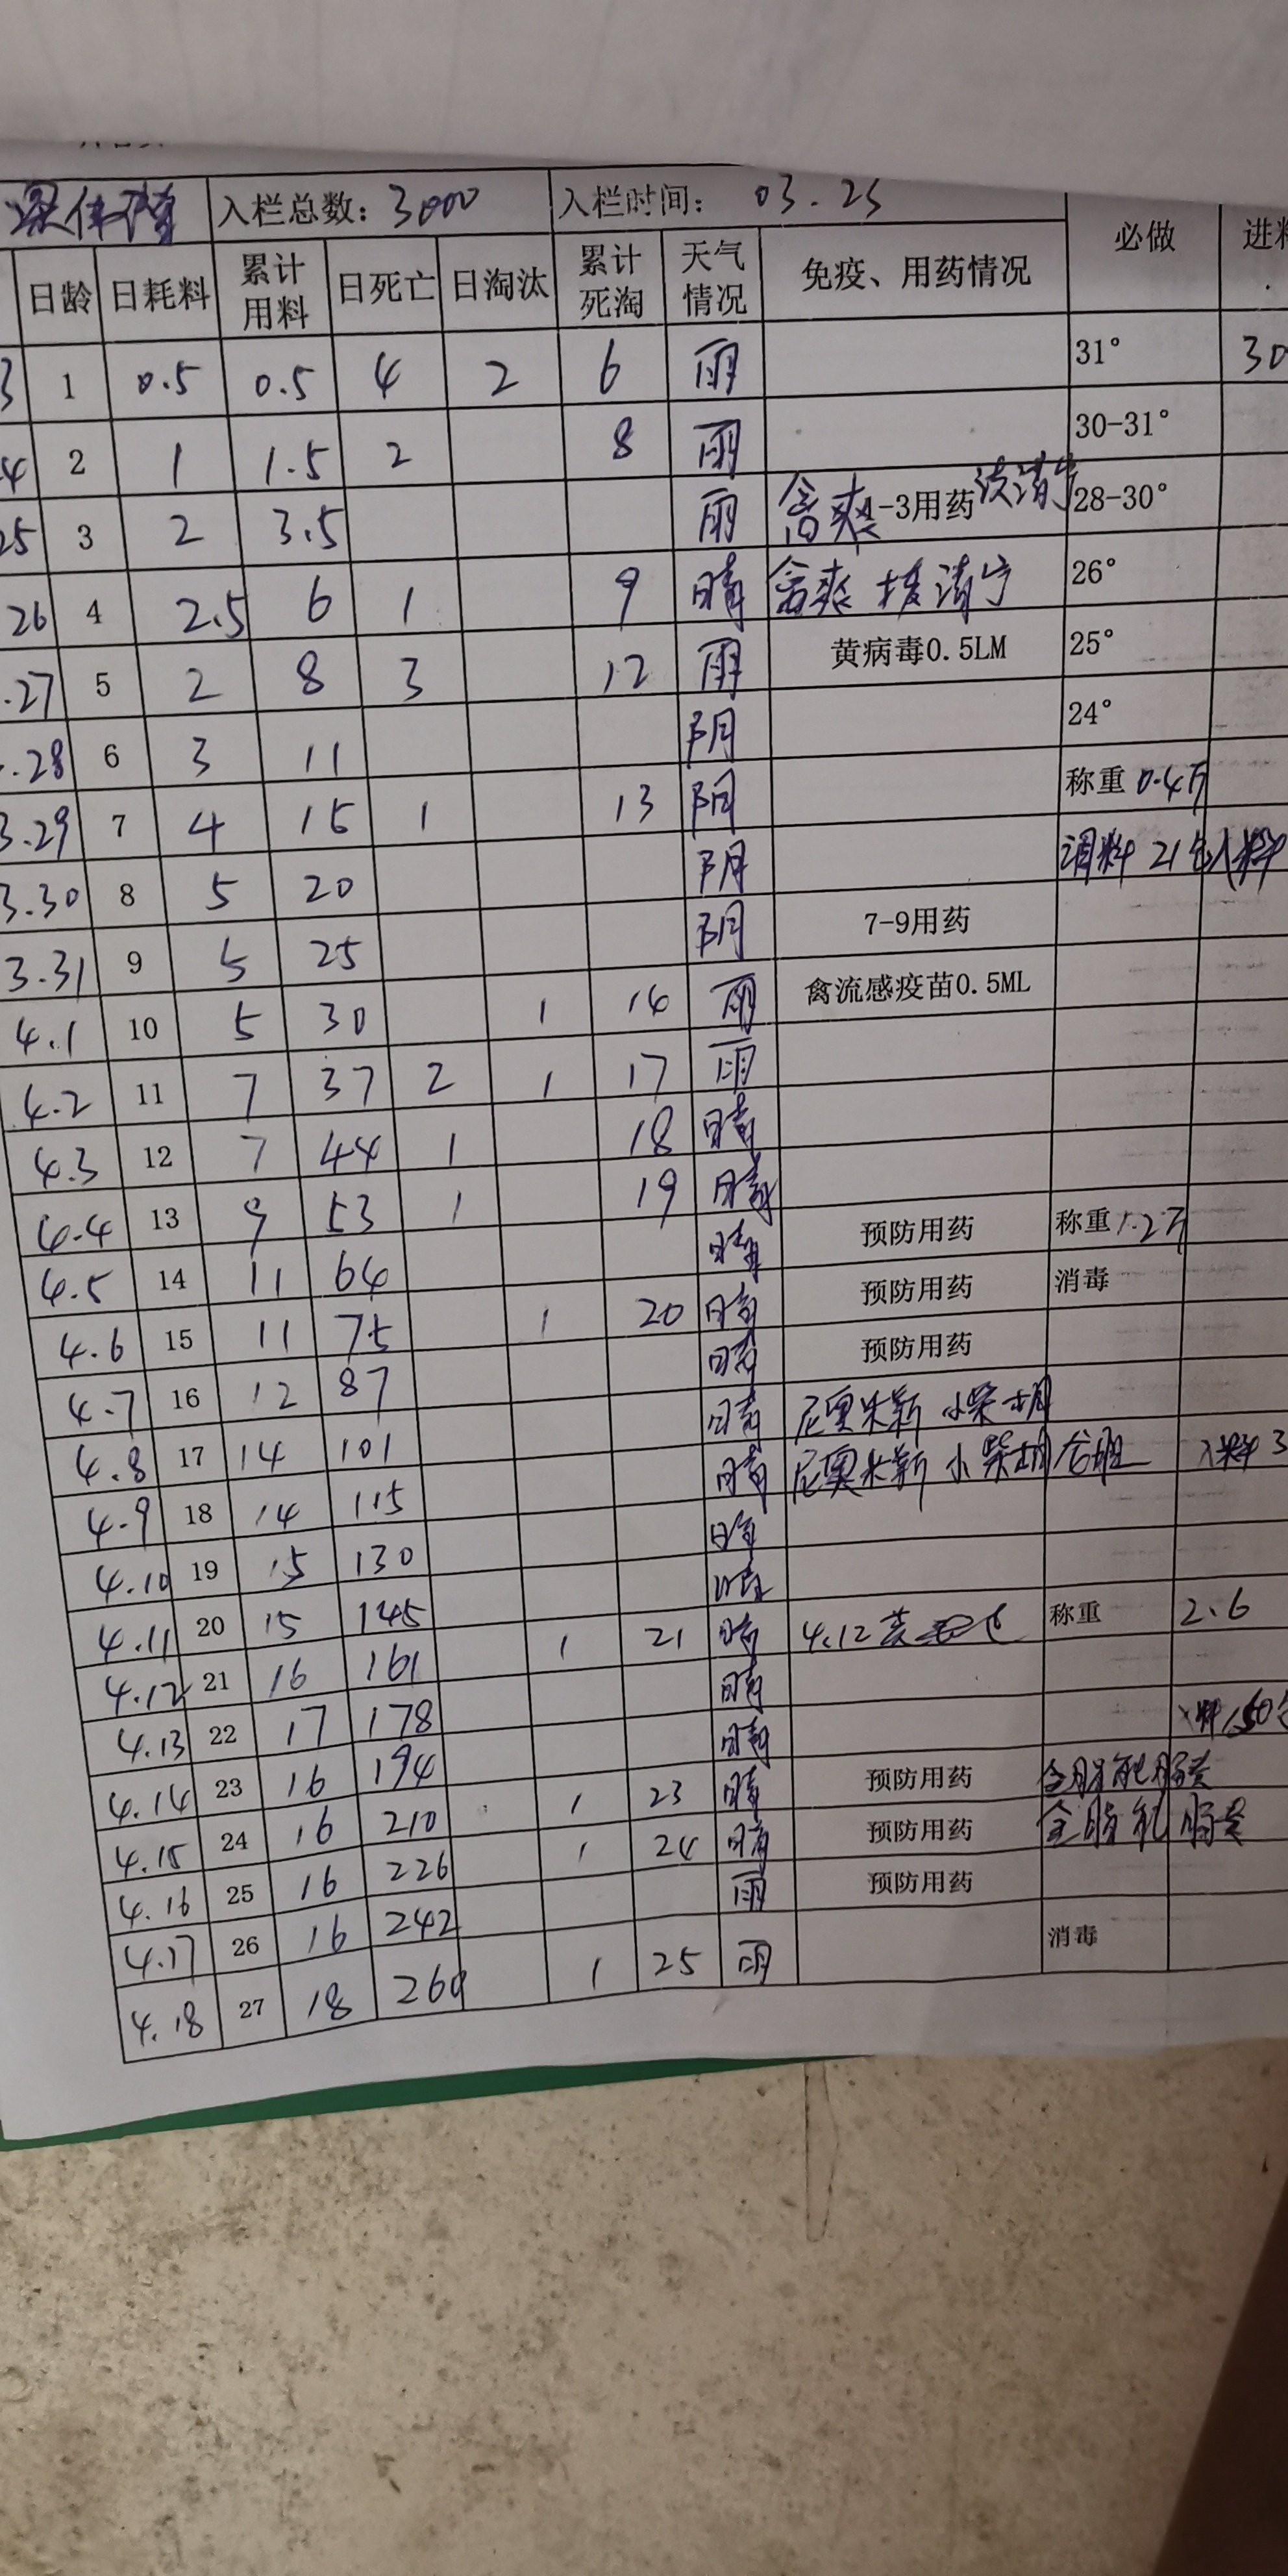 入栏总数：3000 入栏时间： 03.25
日龄 日耗料 累计用料 日死亡 日淘汰 累计死淘 天气情况 免疫、用药情况 必做 进料
3 1 0.5 0.5 4 2 6 雨 31° 30
4 2 1 1.5 2 8 雨 30-31°
25 3 2 3.5 雨 -3用药 28-30°
26 4 2.5 6 1 9 晴 26°
.27 5 2 8 3 12 雨 黄病毒0.5LM 25°
.28 6 3 11 阴 24°
3.29 7 4 15 1 13 阴 称重 0.4斤
3.30 8 5 20 阴
3.31 9 5 25 阴 7-9用药
4.1 10 5 30 1 14 雨 禽流感疫苗0.5ML
4.2 11 7 37 2 1 17 雨
4.3 12 7 44 1 18 晴
4.4 13 9 53 1 19 晴
4.5 14 11 64 晴 预防用药 称重 1.2斤
4.6 15 11 75 1 20 晴 预防用药 消毒
4.7 16 12 87 晴 预防用药
4.8 17 14 101 晴 尼奥米新 小柴胡
4.9 18 14 115 晴 尼奥米新 小柴胡 入料 3
4.10 19 15 130 晴
4.11 20 15 145 晴
4.12 21 16 161 1 21 晴 4.12 称重 2.6
4.13 22 17 178 晴
4.14 23 16 194 晴 入料150
4.15 24 16 210 1 23 晴 预防用药
4.16 25 16 226 1 24 晴 预防用药
4.17 26 16 242 雨 预防用药
4.18 27 18 260 1 25 雨 消毒